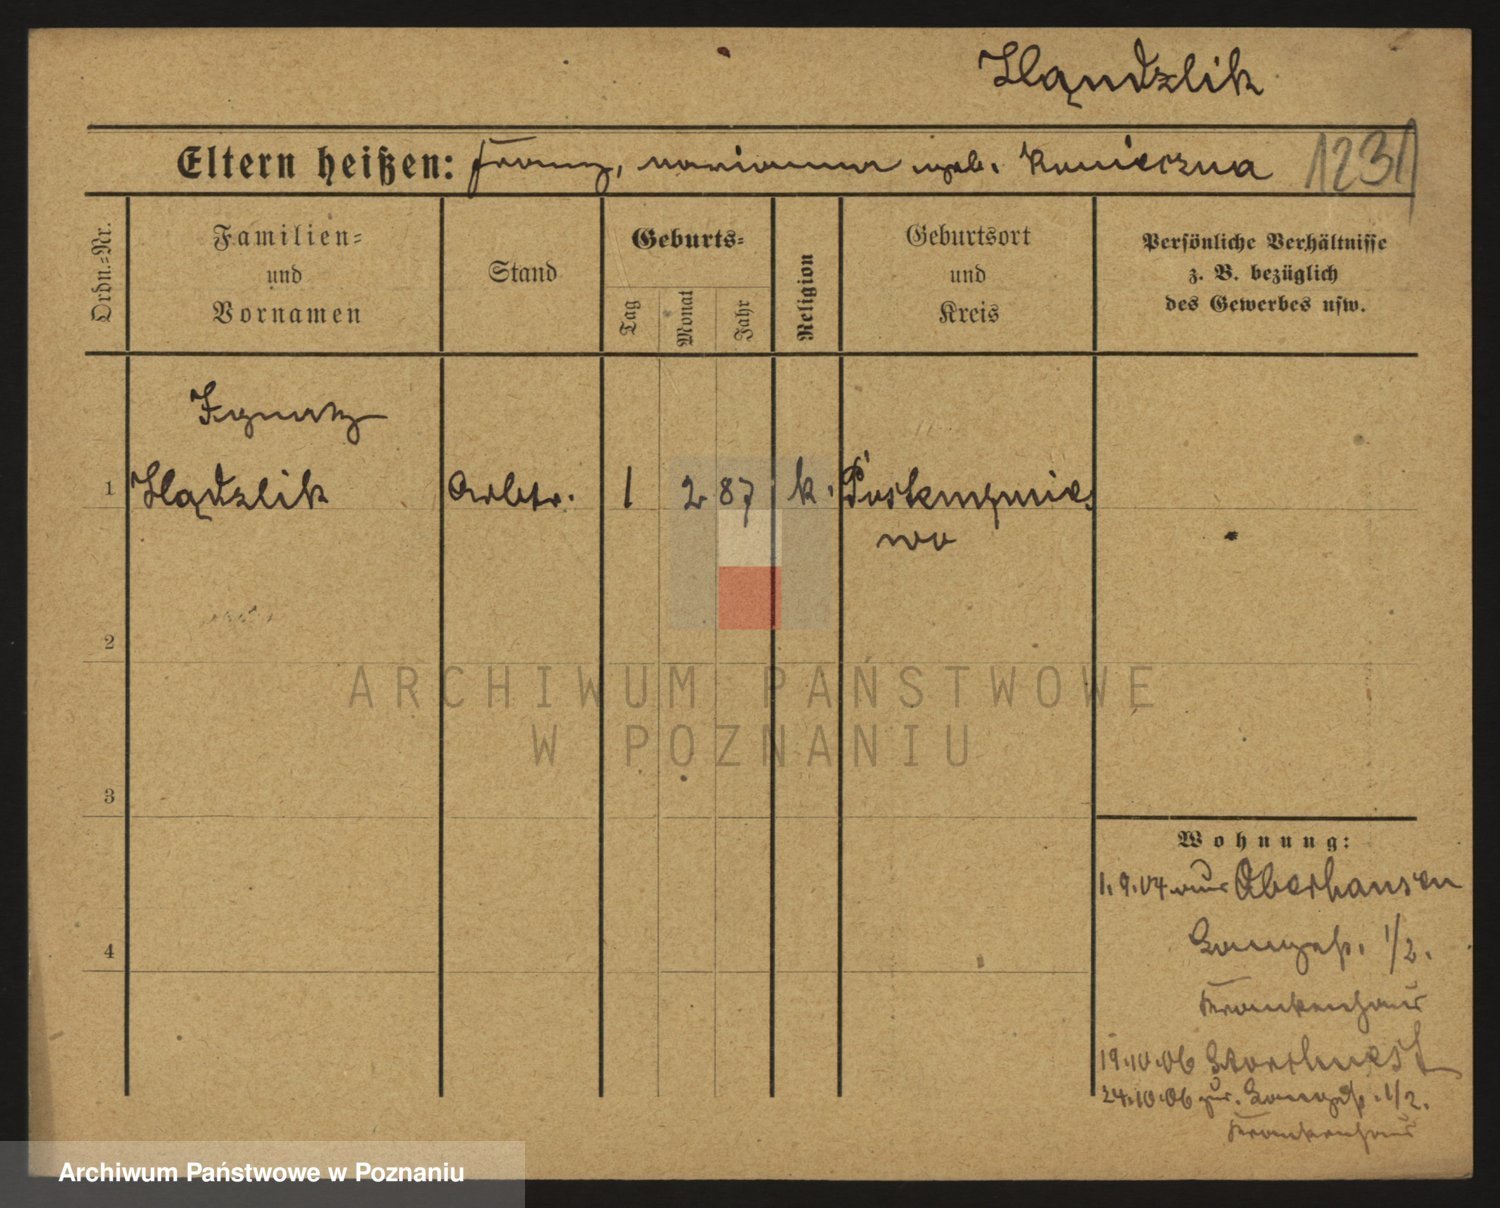 Handzlik
Eltern heißen: Franz, Marianna geb. Konieczna 1231
Ordn.-Nr.
Familien-
und
Vornamen
Stand
Geburts-
Tag
Monat
Jahr
Religion
Geburtsort
und
Kreis
Persönliche Verhältnisse
z. B. bezüglich
des Gewerbes usw.
Ignatz
1 Hądzlik Arbtr. 1 2 87 k.
wo
2
3
4
ARCHIWUM PAŃSTWOWE
W POZNANIU
Wohnung:
1.9.04 aus Oberhausen
Langestr. 1/2.
Krankenhaus
19.10.06 Storchnest
24.10.06 zur. Langestr. 1/2.
Krankenhaus
Archiwum Państwowe w Poznaniu